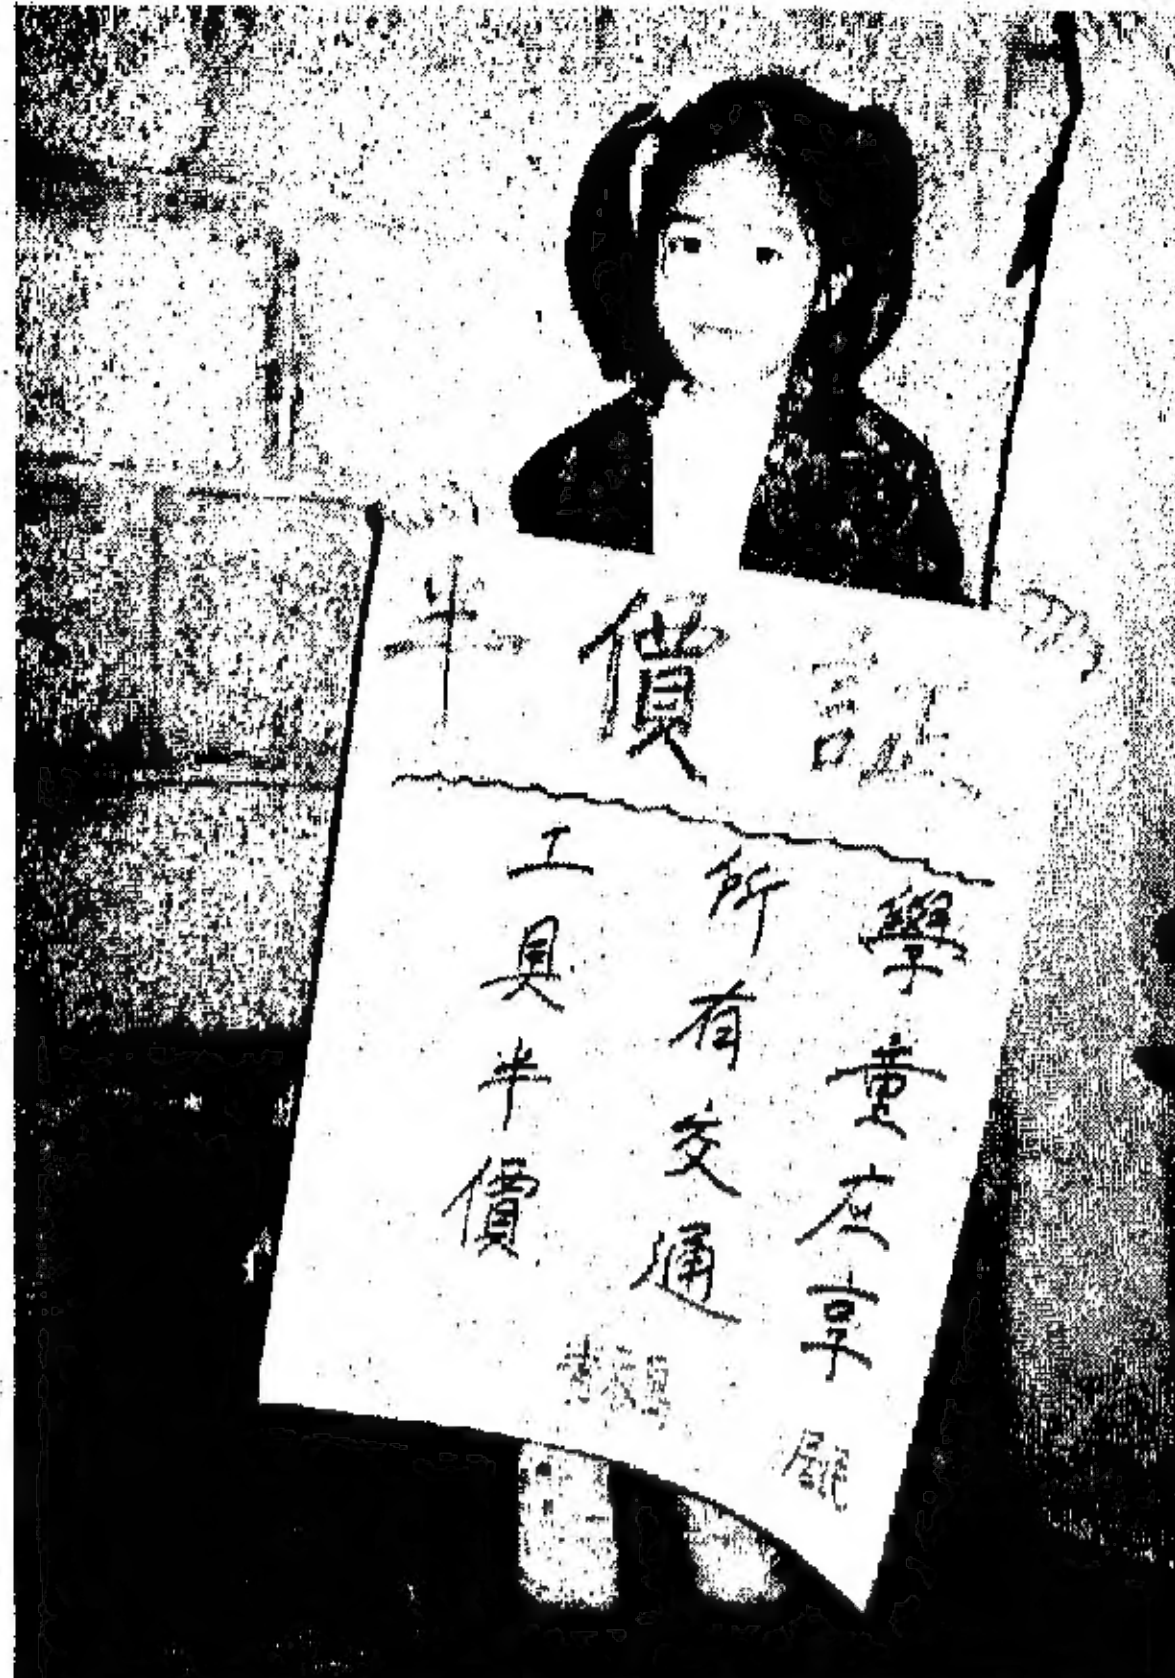 半價証
學童应享
所有交通
工具半價